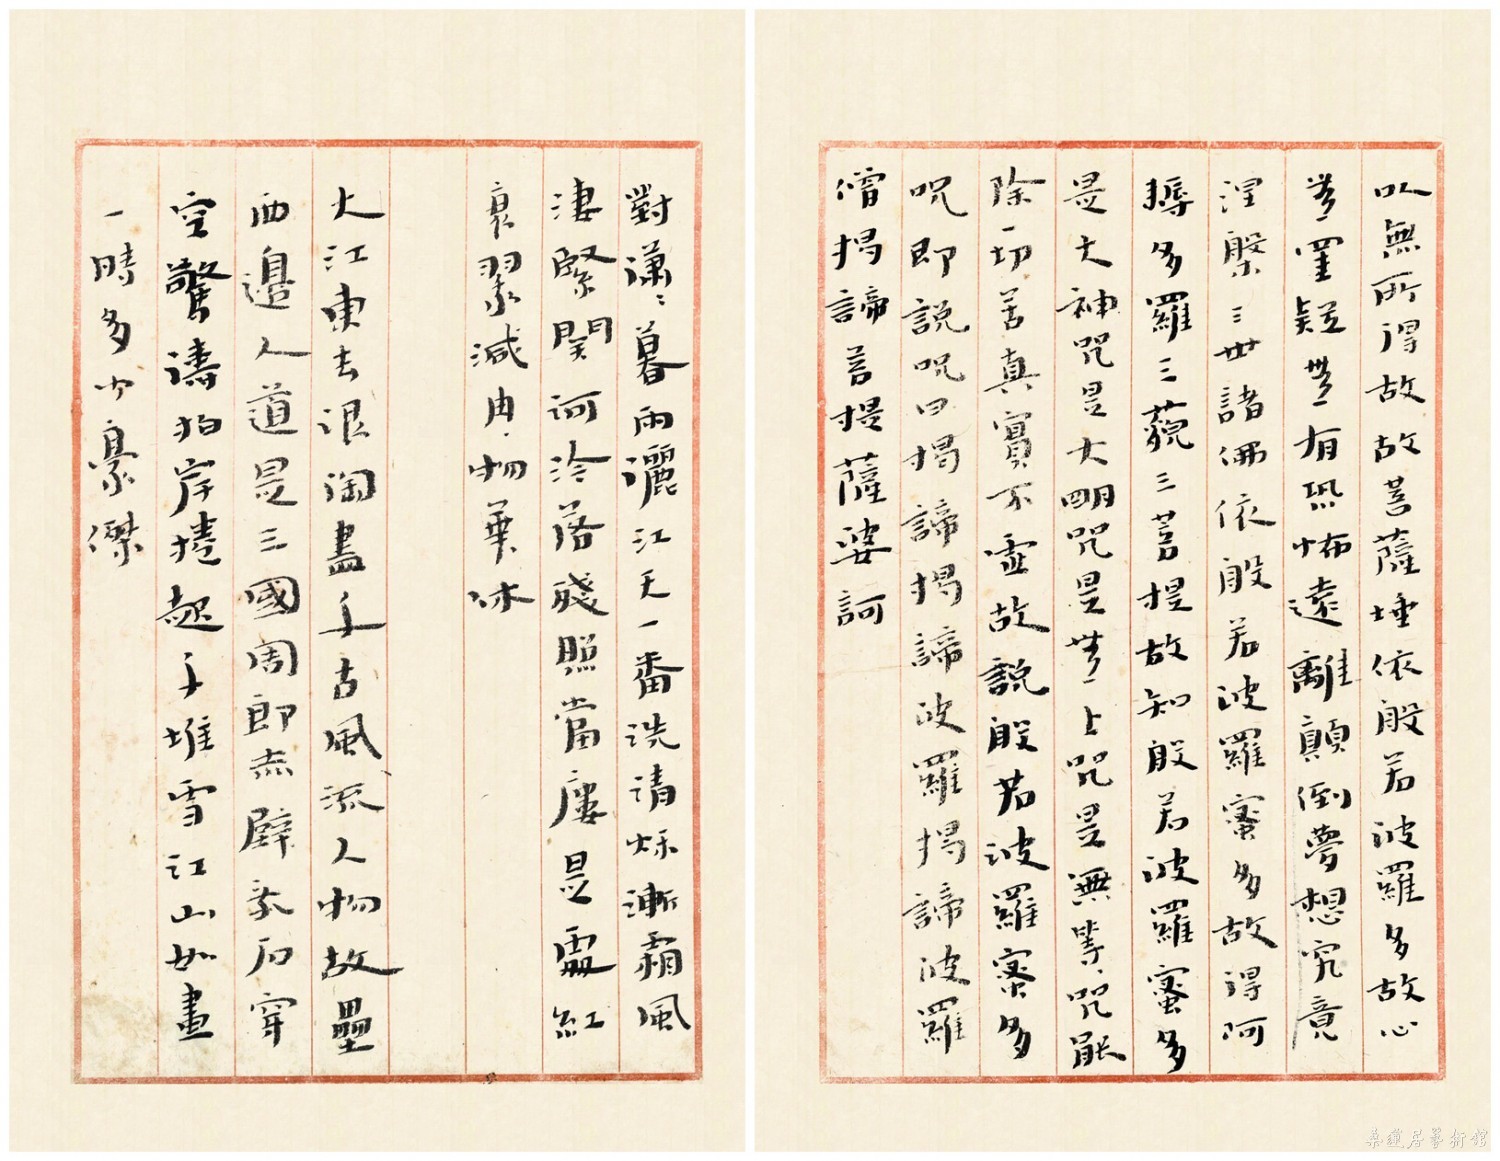 以無所得故故菩薩埵依般若波羅多故心
無罣疑無有恐怖遠離顛倒夢想究竟
涅槃三世諸佛依般若波羅蜜多故得阿
耨多羅三藐三菩提故知般若波羅蜜多
是大神咒是大明咒是無上咒是無等〻咒能
除一切苦真實不虛故說般若波羅蜜多
咒即說咒曰揭諦揭諦波羅揭諦波羅
僧揭諦菩提薩婆訶
對瀟〻暮雨灑江天一番洗清秋漸霜風
淒緊關河冷落殘照當樓是處紅
衰翠減冉〻物華休
大江東去浪淘盡千古風流人物故壘
西邊人道是三國周郎赤壁亂石穿
空驚濤拍岸捲起千堆雪江山如畫
一時多少豪傑
桑蓮居藝術館